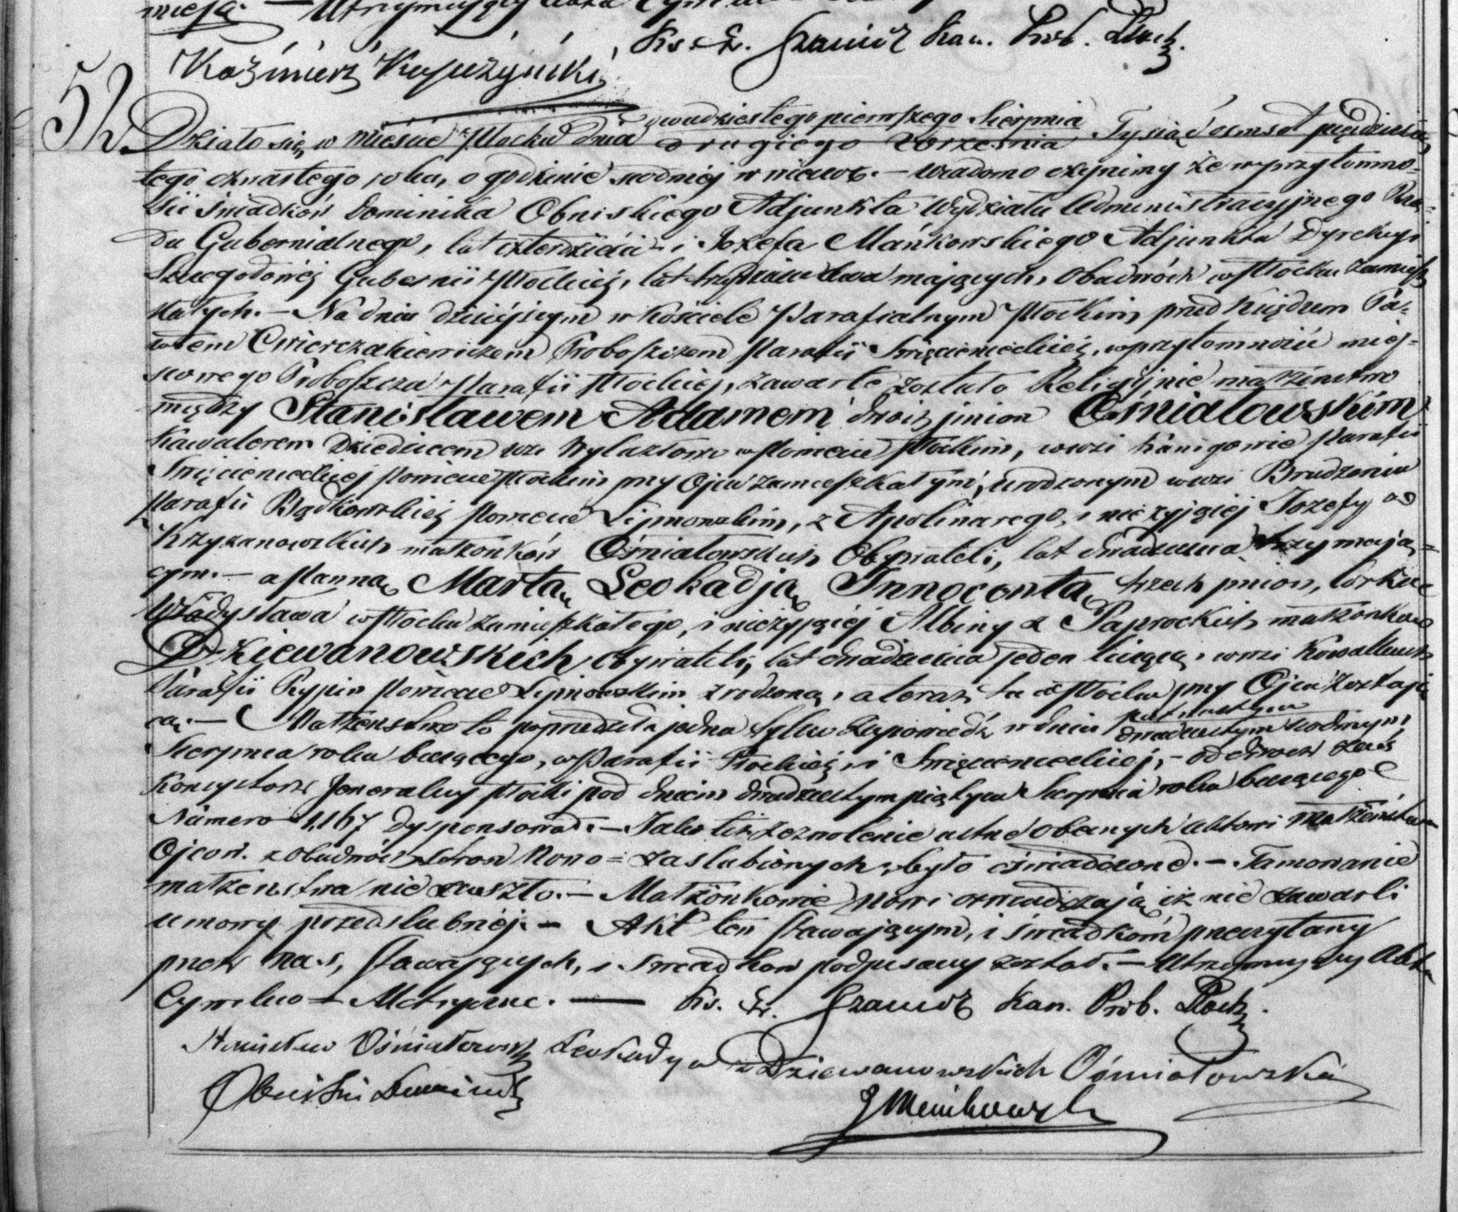 Utrzymujący
Ks. F. Szamicz Kan. Prob. Płock.
Kaźimierz
52.
dwudziestego pierwszego Sierpnia
Działo się w Mieście Płocku dnia drugiego Września Tysiąc ośmset pięćdziesią
tego ósmego roku, o godzinie siódmej w wieczór. — Wiadomo czynimy że w przytomno-
ści świadków Dominika Obniskiego Adjunkta Wydziału Administracyjnego Rzą-
du Gubernialnego, lat czterdzieści — i Józefa Mańkowskiego Adjunkta Dyrekcyi
Szczegółowéj Gubernii Płockiéj, lat trzydzieści dwa mających, obudwóch w Płocku zamiesz
kałych. — Na dniu dzisiejszym w kościele Parafialnym Płockim przed Księdzem Pa-
włem Cwierczakiewiczem Proboszczem Parafii Święcienieckiéj, w przytomności miej-
scowego Proboszcza Parafii Płockiéj, zawarte zostało Religijnie małżeństwo
między Stanisławem Adamem dwóch imion Ośniałowskim
Kawalerem Dziedzicem wsi w Powiecie Płockim, w wsi Kanigowie Parafii
Święcienieckiéj Powiecie Płockim przy Ojcu zamieszkałym, urodzonym w wsi Brudzeniu
Parafii Bądkowskiéj Powiecie Lipnowskim, z Apolinarego, i nieżyjącéj Józefy z
Krzyżanowskich małżonków Ośniałowskich Obywateli, lat dwadzieścia trzy mają-
cym. — a Panną Martą Leokadją Innocentą trzech imion, Córką
Władysława w Płocku zamieszkałego, i nieżyjącéj Albiny z Paprockich małżonków
Dziewanowskich Obywateli, lat dwadzieścia jeden liczącą, w wsi Kowalkach
Parafii Rypin Powiecie Lipnowskim zrodzoną, a teraz tu w Płocku przy Ojcu zostają
cą. — Małżeństwo to poprzedziła jedna tylko zapowiedź w dniu
dwudziestym
Sierpnia roku bieżącego, w Parafii Płockiéj, i Święcienieckiéj, — od dwóch zaś
Konsystorz Jeneralny Płocki pod dniem dwudziestym piątym Sierpnia roku bieżącego
Numero 1167 dyspensował. — Jakotéż zezwolenie ustne obecnych aktowi małżeństwa
Ojców z obudwóch stron Nowo-zaślubionych było oświadczone. — Tamowanie
małżeństwa nie zaszło. — Małżonkowie nowi oświadczają iż nie zawarli
umowy przedślubnéj. — Akt ten stawającym, i świadkom przeczytany
przez nas, stawających, i świadków podpisany został. — Utrzymujący Akta
Cywilno-Metryczne. — Ks. F. Szamicz Kan. Prob. Płock.
Stanisław Ośniałowski Leokadya z Dziewanowskich Ośniałowska
Obniski Dominik
J Mańkowski